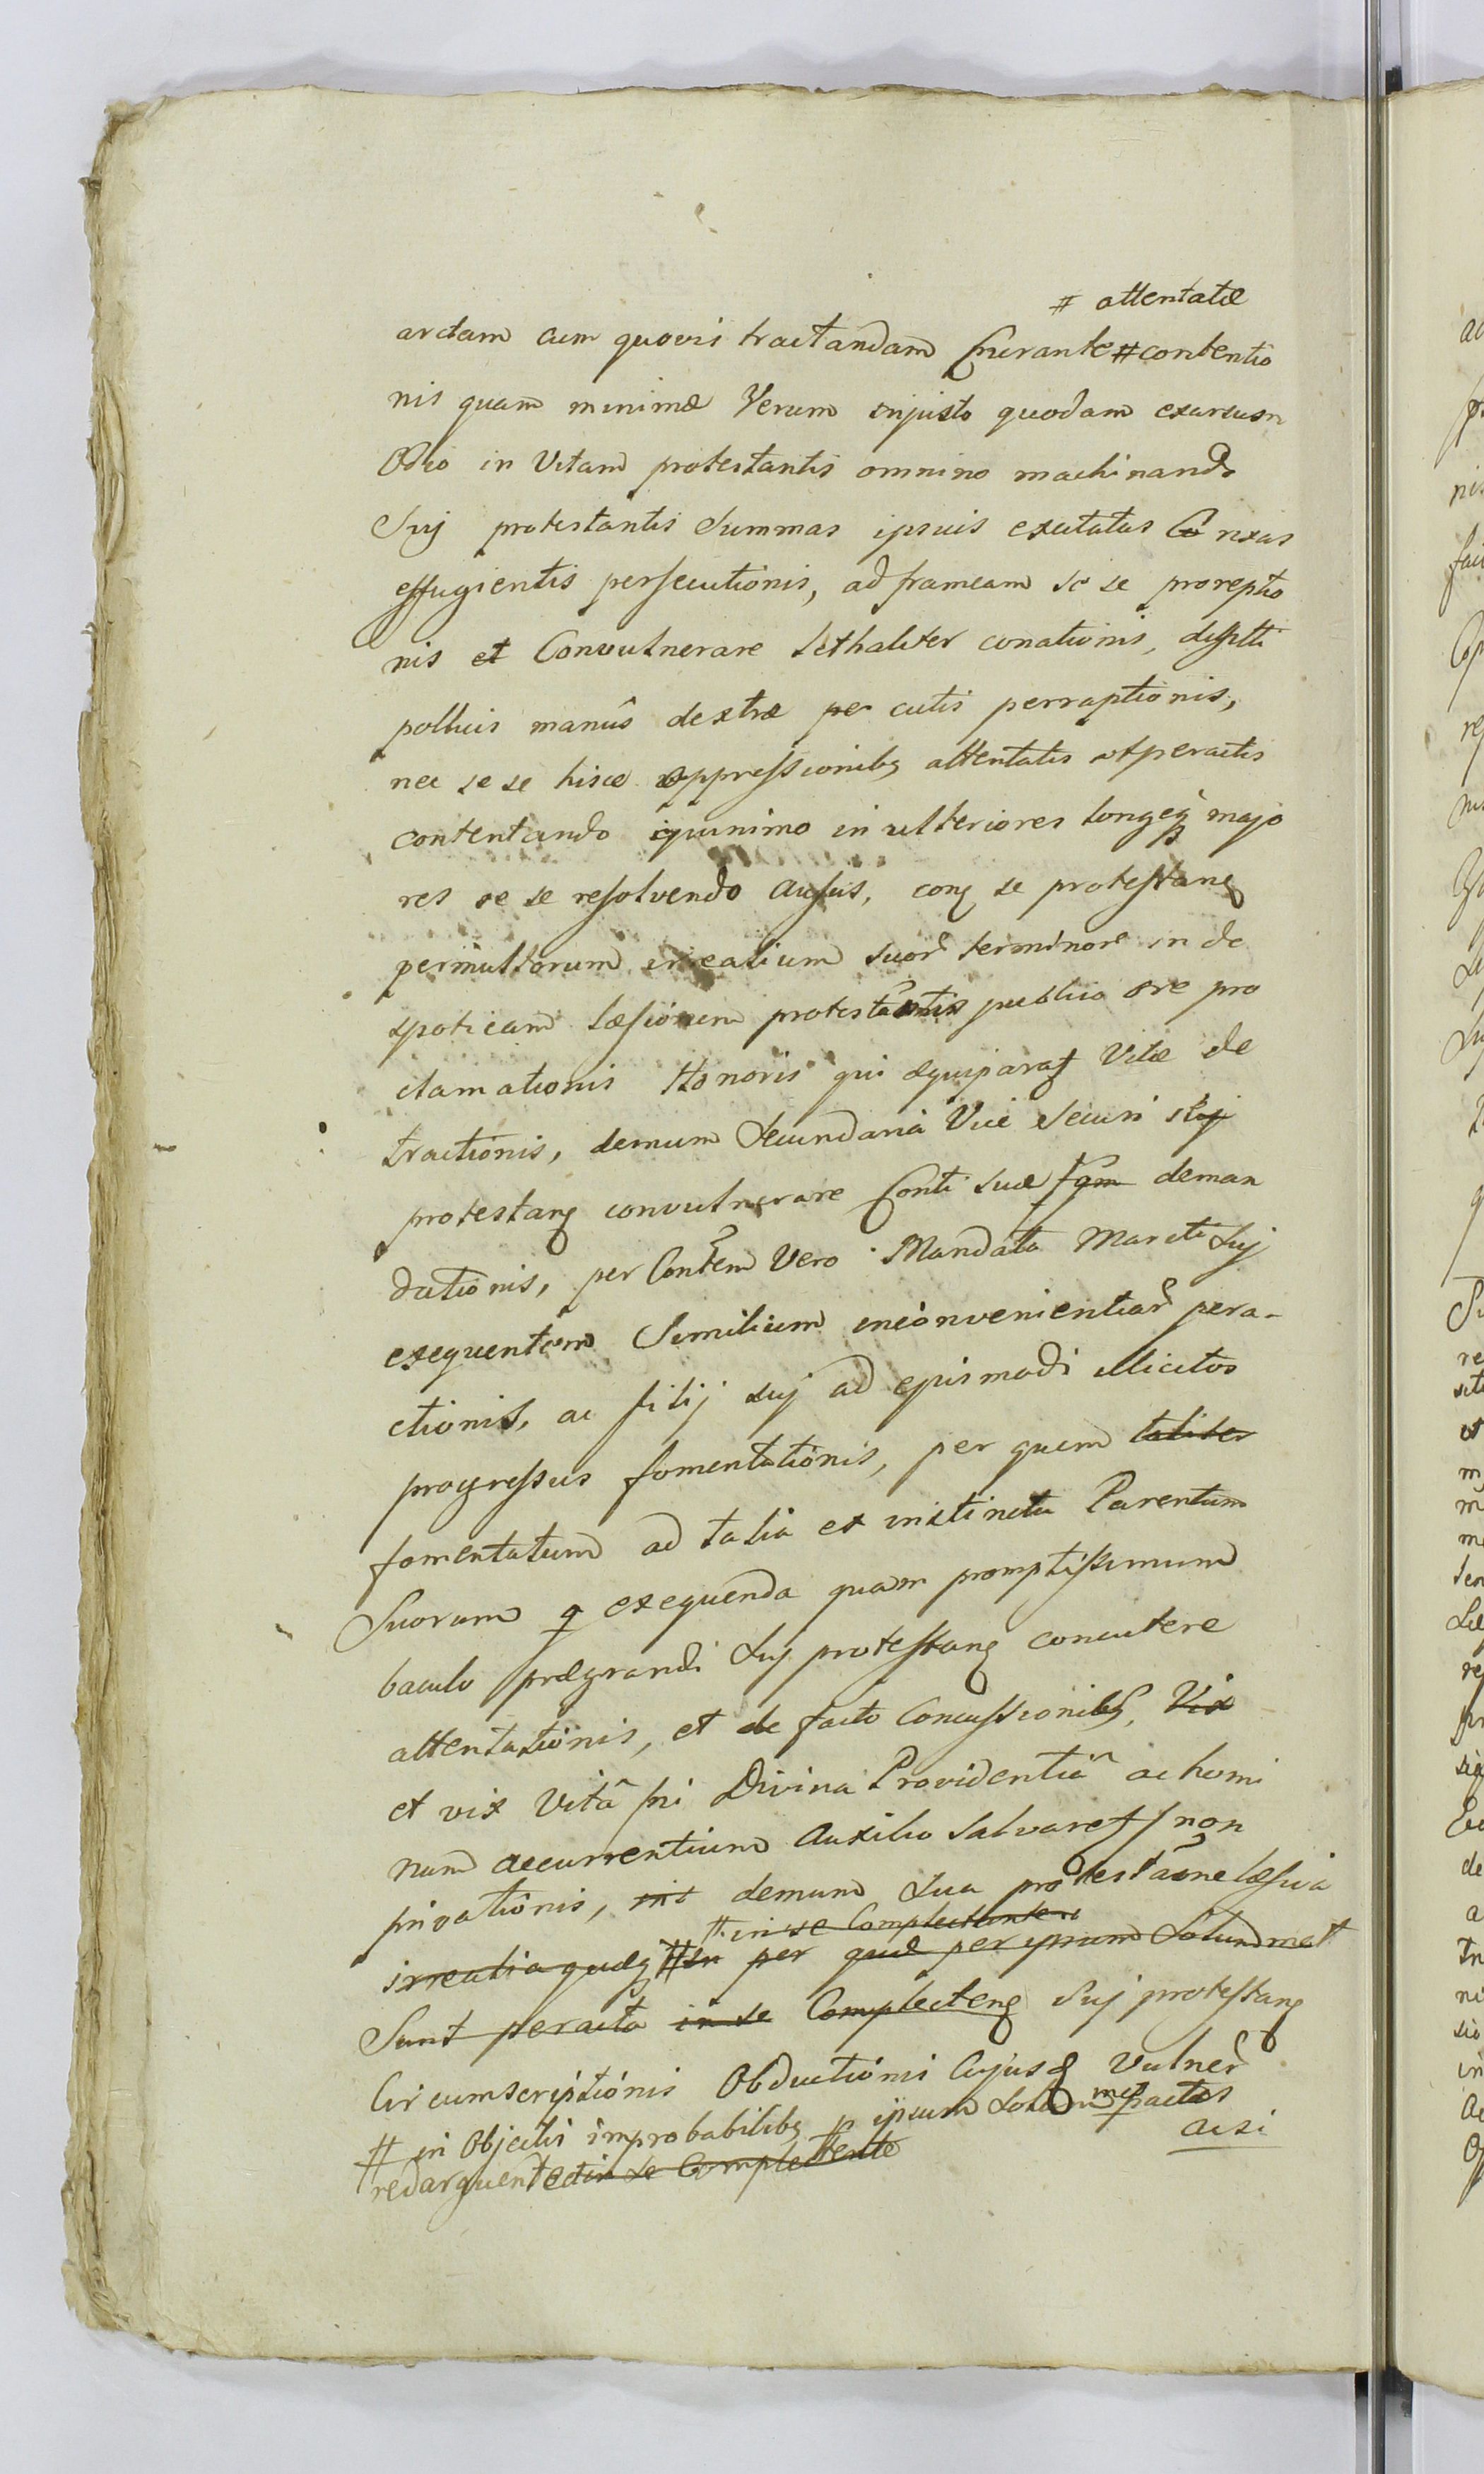 # attentatæ
arctam cum quovis tractandam Cnerante # contentio
nis quam minimæ Verum injusto quodam exarsum
Odio in Vitam protestantis omnino machinando
Suj protestantis Summas ipsius excitatas Co nxas
effugientis persecutionis, ad frameam se se proreptio
nis et Convulnerare lethaliter conationis, digitti
pollicis manûs dextræ pe cutis perraptionis,
nec se se hisce oppressionibq attentatis et peractis
contentando quinimo in ulteriores longeq majo
res se se resolvendo ausus, conq se protestanq
permultorum irrealium suor terminor in de
spoticam læsionem protestantis publico ore pro
clamationis Honoris qui æquiparaq Vitæ de
tractionis, demum Secundaria Vice Securi suj
protestanq convulnerare Conti suæ deman
dationis, per Contem Vero Mandata Mariti Suj
exequentem Similium inconvenientiar pera-
ctionis, ac filij suj ad ejusmodi illicitos
progressus fomentationis, per quem taliter
fomentatum ad talia ex instinctu Parentum
Suorum q exequenda quam promptissimum
baculo prægrandi Suj protestanq concutere
attentationis, et de facto Concussionibq, Vix
et vix Vitâ sni Divina Providentiâ ac homi
num accurrentium Auxilio Salvaret non
privationis, demum Sua protestaõne læsiva
# in se Complectente
irrealia quæq # in per quæ per ipsum Solummet
Sunt peracta in se Complecteng Suj protestanq
Circumscriptionis Obductionis Cujusq Vulner
# in Objectis improbabilibq p ipsum Solummet factas
acsi
redarguente et in se Complectente